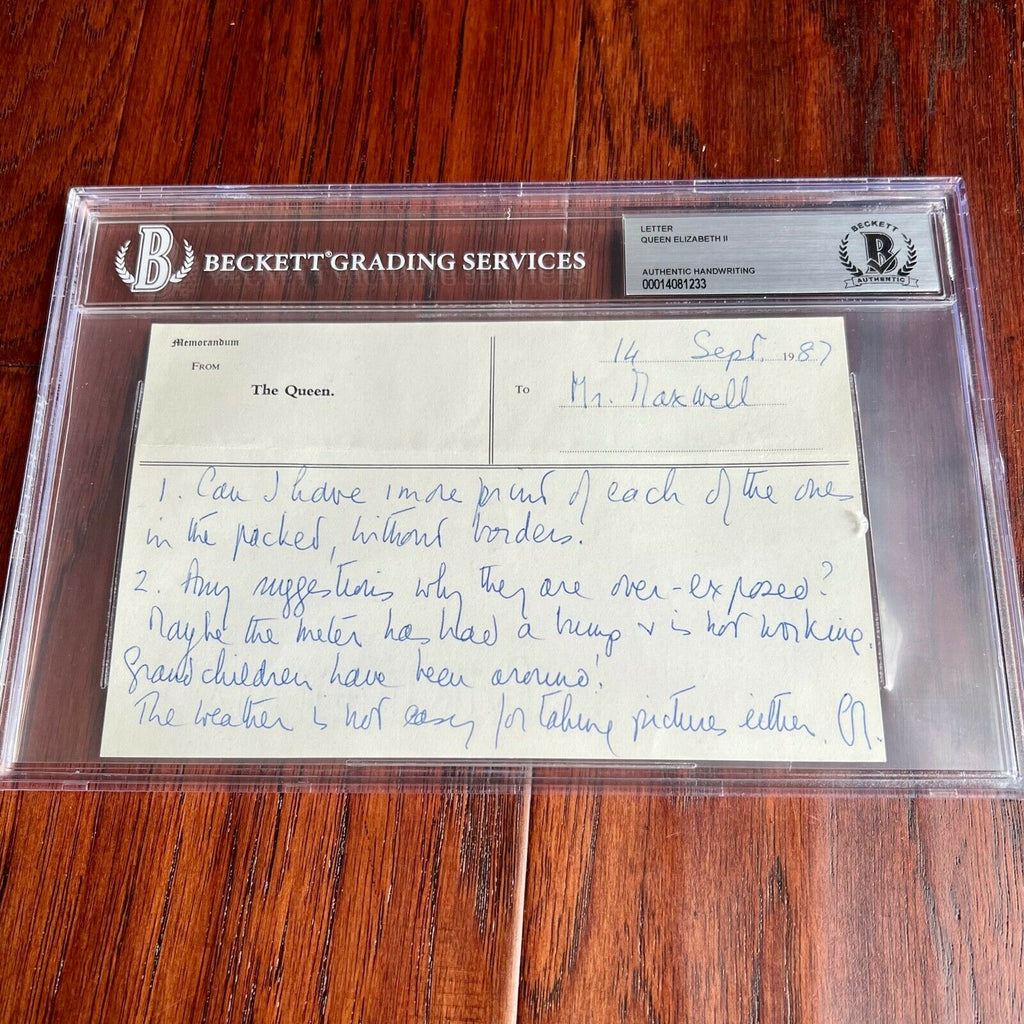 LETTER
QUEEN ELIZABETH II
AUTHENTIC HANDWRITING
00014081233
BECKETT
B
AUTHENTIC
B
BECKETT® GRADING SERVICES
Memorandum
FROM
The Queen.
14 Sept. 1987
TO Mr. Maxwell
1. Can I have 1 more print of each of the ones
in the packet, without borders.
2. Any suggestions why they are over-exposed?
Maybe the meter has had a bump & is not working.
Grandchildren have been around!
The weather is not easy for taking pictures either. ER.